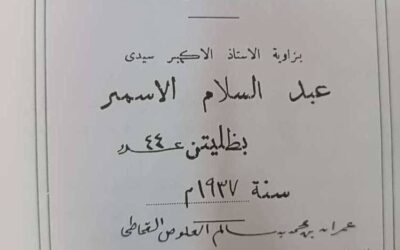 بزاوية الاستاذ الاكبر سيدى
عبد السلام الاسمر
بظليتن عدد ٤٤
سنة ١٩٣٧م
عمران بن محمد بن سالم العلوص القماطى